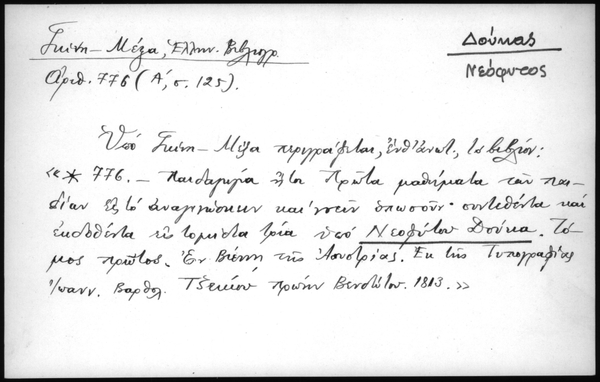 Γκίνη – Μέξα, Ἑλλην. Βιβλιογρ.
Ἀριθ. 776 (Α΄, σ. 125).
Δούκας
Νεόφυτος
Ὑπό Γκίνη – Μέξα περιγράφεται, ἔνθ' ἀνωτ., το βιβλίον:
«* 776. – Παιδαγωγία ἤτοι Πρῶτα μαθήματα τῶν παι-
δίων εἰς τό ἀναγινώσκειν και νοεῖν ὁπωσοῦν· συντεθέντα καί
ἐκδοθέντα εἰς τομίστα τρία ὑπό Νεοφύτου Δούκα. Τό-
μος πρῶτος. Ἐν Βιέννῃ τῆς Ἀουστρίας. Ἐκ τῆς Τυπογραφίας
Ἰωανν. Βαρθολ. Τζβεκίου πρώην Βενδώτου. 1813. »